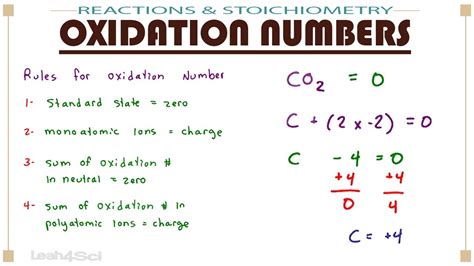 REACTIONS & STOICHIOMETRY
OXIDATION NUMBERS
Rules for oxidation Number
1- Standard state = zero
2- monoatomic Ions = charge
3- sum of oxidation #
in neutral = zero
4- sum of oxidation # in
polyatomic Ions = charge
CO₂ = 0
C + (2 x -2) = 0
C - 4 = 0
+4 +4
0 4
C = +4
Leah4Sci